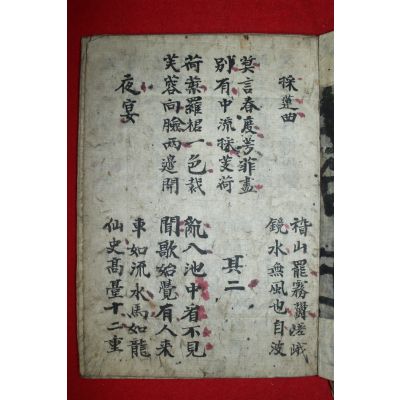 採蓮曲
稽山罷霧鬱嵯峨
鏡水無風也自波
莫言春度芳菲盡
別有中流採芰荷
其二
荷葉羅裙一色裁
芙蓉向臉兩邊開
亂入池中看不見
聞歌始覺有人來
夜宴
車如流水馬如龍
仙史高臺十二重